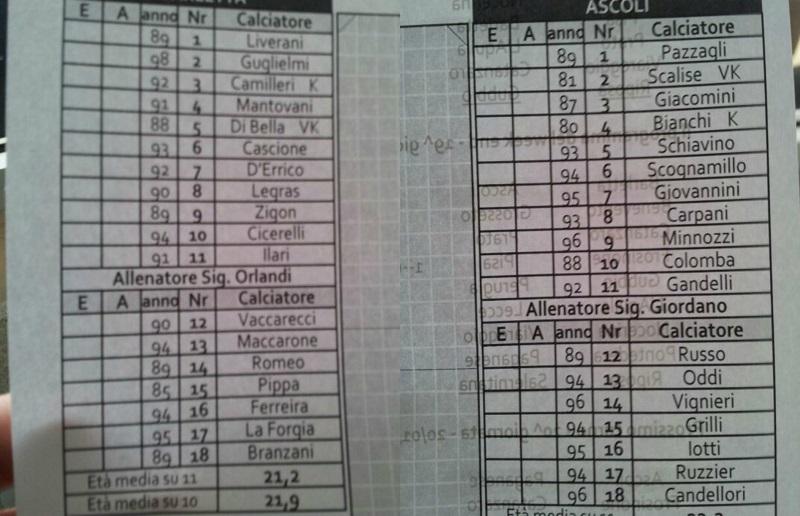 E A anno Nr Calciatore
89 1 Liverani
98 2 Guglielmi
92 3 Camilleri K
91 4 Mantovani
88 5 Di Bella VK
93 6 Cascione
92 7 D'Errico
90 8 Legras
89 9 Zigon
94 10 Cicerelli
91 11 Ilari
Allenatore Sig. Orlandi
E A anno Nr Calciatore
90 12 Vaccarecci
94 13 Maccarone
89 14 Romeo
85 15 Pippa
94 16 Ferreira
95 17 La Forgia
89 18 Branzani
Età media su 11 21,2
Età media su 10 21,9
ASCOLI
E A anno Nr Calciatore
89 1 Pazzagli
81 2 Scalise VK
87 3 Giacomini
80 4 Bianchi K
93 5 Schiavino
94 6 Scognamillo
95 7 Giovannini
93 8 Carpani
96 9 Minnozzi
88 10 Colomba
92 11 Gandelli
Allenatore Sig. Giordano
E A anno Nr Calciatore
89 12 Russo
94 13 Oddi
96 14 Vignieri
94 15 Grilli
95 16 Iotti
94 17 Ruzzier
96 18 Candellori
Età media su